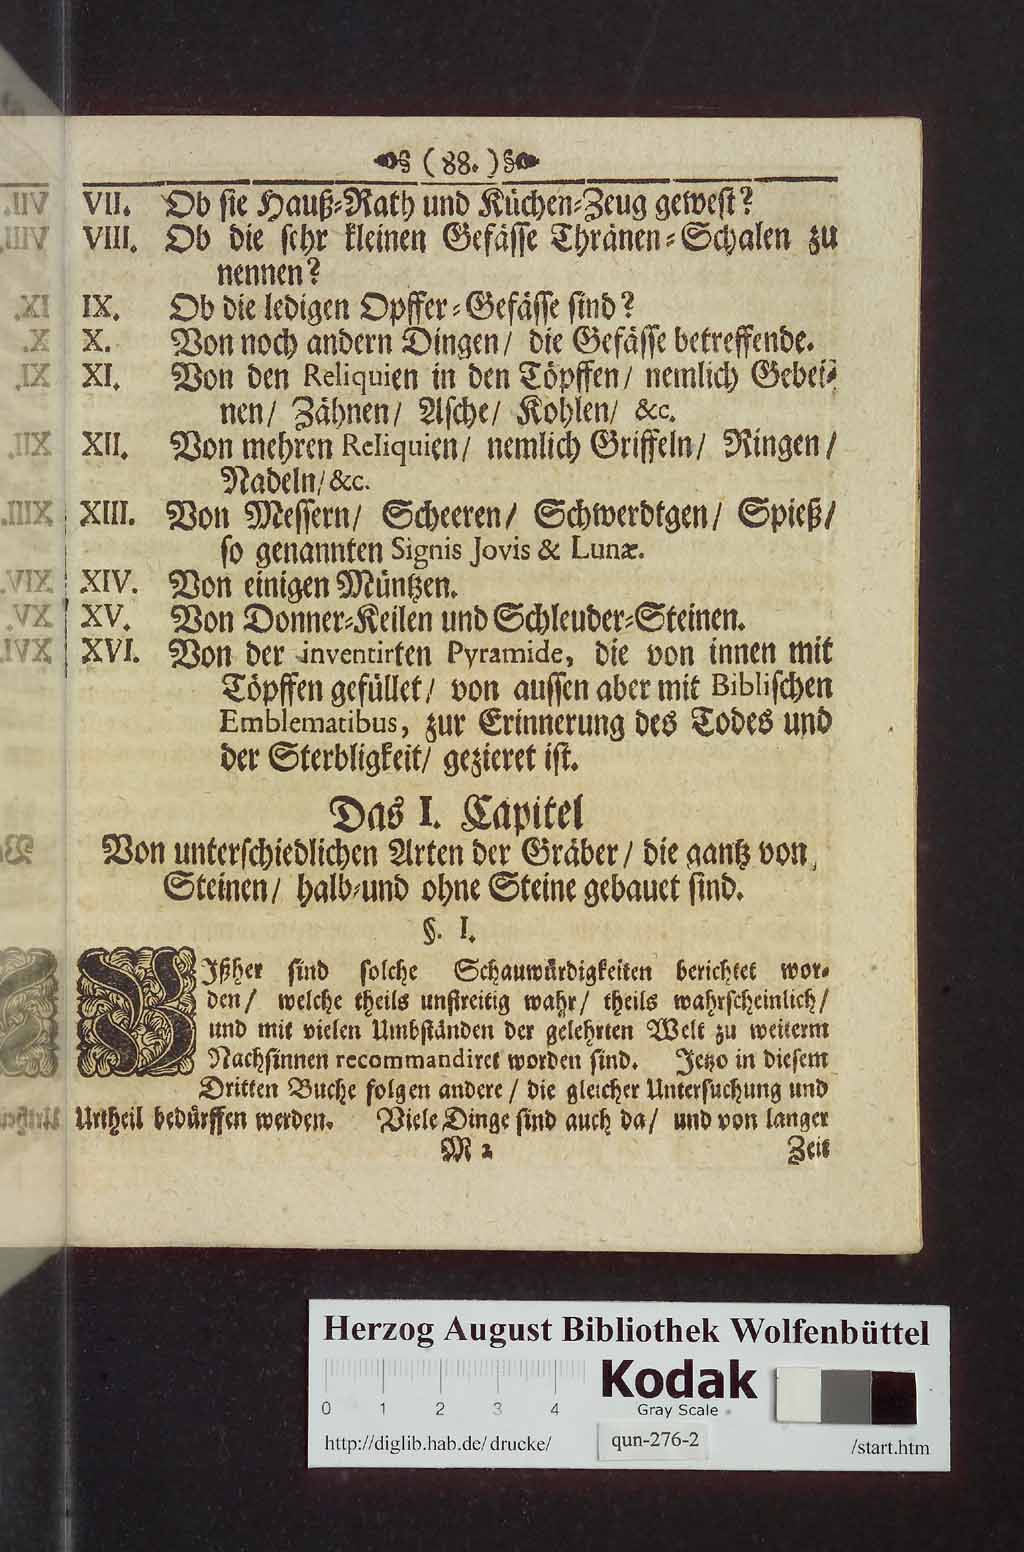 (88.)
VII. Ob sie Hauß-Rath und Küchen-Zeug gewest?
VIII. Ob die sehr kleinen Gefässe Thränen-Schalen zu
nennen?
IX. Ob die ledigen Opffer-Gefässe sind?
X. Von noch andern Dingen/ die Gefässe betreffende.
XI. Von den Reliquien in den Töpffen/ nemlich Gebei-
nen/ Zähnen/ Asche/ Kohlen/ &c.
XII. Von mehren Reliquien/ nemlich Griffeln/ Ringen/
Nadeln/ &c.
XIII. Von Messern/ Scheeren/ Schwerdtgen/ Spieß/
so genannten Signis Jovis & Lunæ.
XIV. Von einigen Müntzen.
XV. Von Donner-Keilen und Schleuder-Steinen.
XVI. Von der inventirten Pyramide, die von innen mit
Töpffen gefüllet/ von aussen aber mit Biblischen
Emblematibus, zur Erinnerung des Todes und
der Sterbligkeit/ gezieret ist.
Das I. Capitel
Von unterschiedlichen Arten der Gräber/ die gantz von
Steinen/ halb-und ohne Steine gebauet sind.
§. I.
BIßher sind solche Schauwürdigkeiten berichtet wor-
den/ welche theils unstreitig wahr/ theils wahrscheinlich/
und mit vielen Umbständen der gelehrten Welt zu weiterm
Nachsinnen recommandiret worden sind. Jetzo in diesem
Dritten Buche folgen andere/ die gleicher Untersuchung und
Urtheil bedürffen werden. Viele Dinge sind auch da/ und von langer
M 2 Zeit
Herzog August Bibliothek Wolfenbüttel
0 1 2 3 4
Kodak
Gray Scale
http://diglib.hab.de/drucke/ qun-276-2 /start.htm